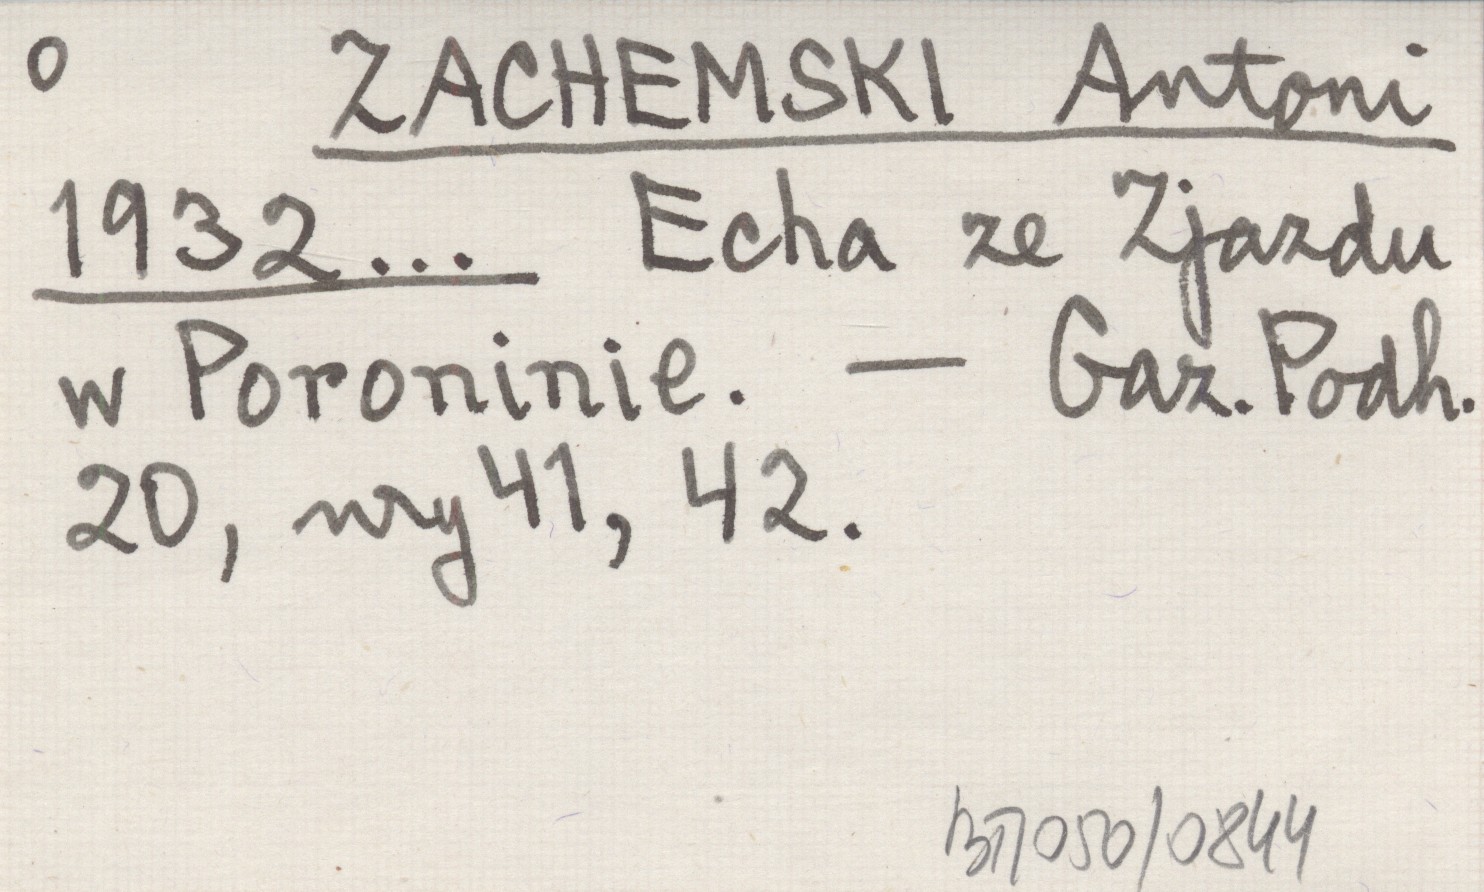 o ZACHEMSKI Antoni
1932... Echa ze Zjazdu
w Poroninie. — Gaz. Podh.
20, nry 41, 42.
050/0844